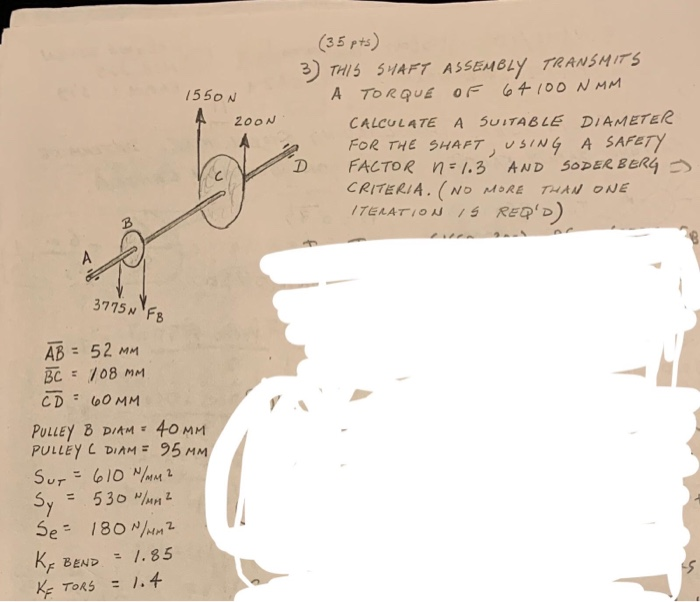 (35 pts)
3) THIS SHAFT ASSEMBLY TRANSMITS
A TORQUE OF 64100 N MM
CALCULATE A SUITABLE DIAMETER
FOR THE SHAFT, USING A SAFETY
FACTOR n=1.3 AND SODERBERG ⇒
CRITERIA. (NO MORE THAN ONE
ITERATION IS REQ'D)
1550 N
200N
C
D
B
A
3775N FB
AB = 52 MM
BC = 108 MM
CD = 60 MM
PULLEY B DIAM = 40 MM
PULLEY C DIAM = 95 MM
SUT = 610 N/MM²
Sy = 530 N/MM²
Se = 180 N/MM²
KF BEND = 1.85
KF TORS = 1.4